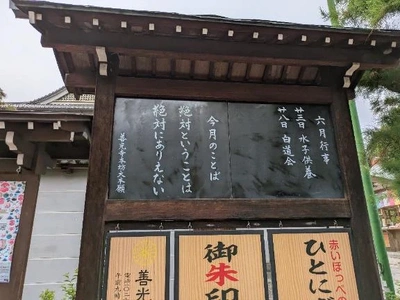 六月行事
廿三日 水子供養
廿八日 白道会
今月のことば
絶対ということは
絶対にありえない
善光寺本坊大本願
赤いほっぺ
ひとに
御朱印
善光